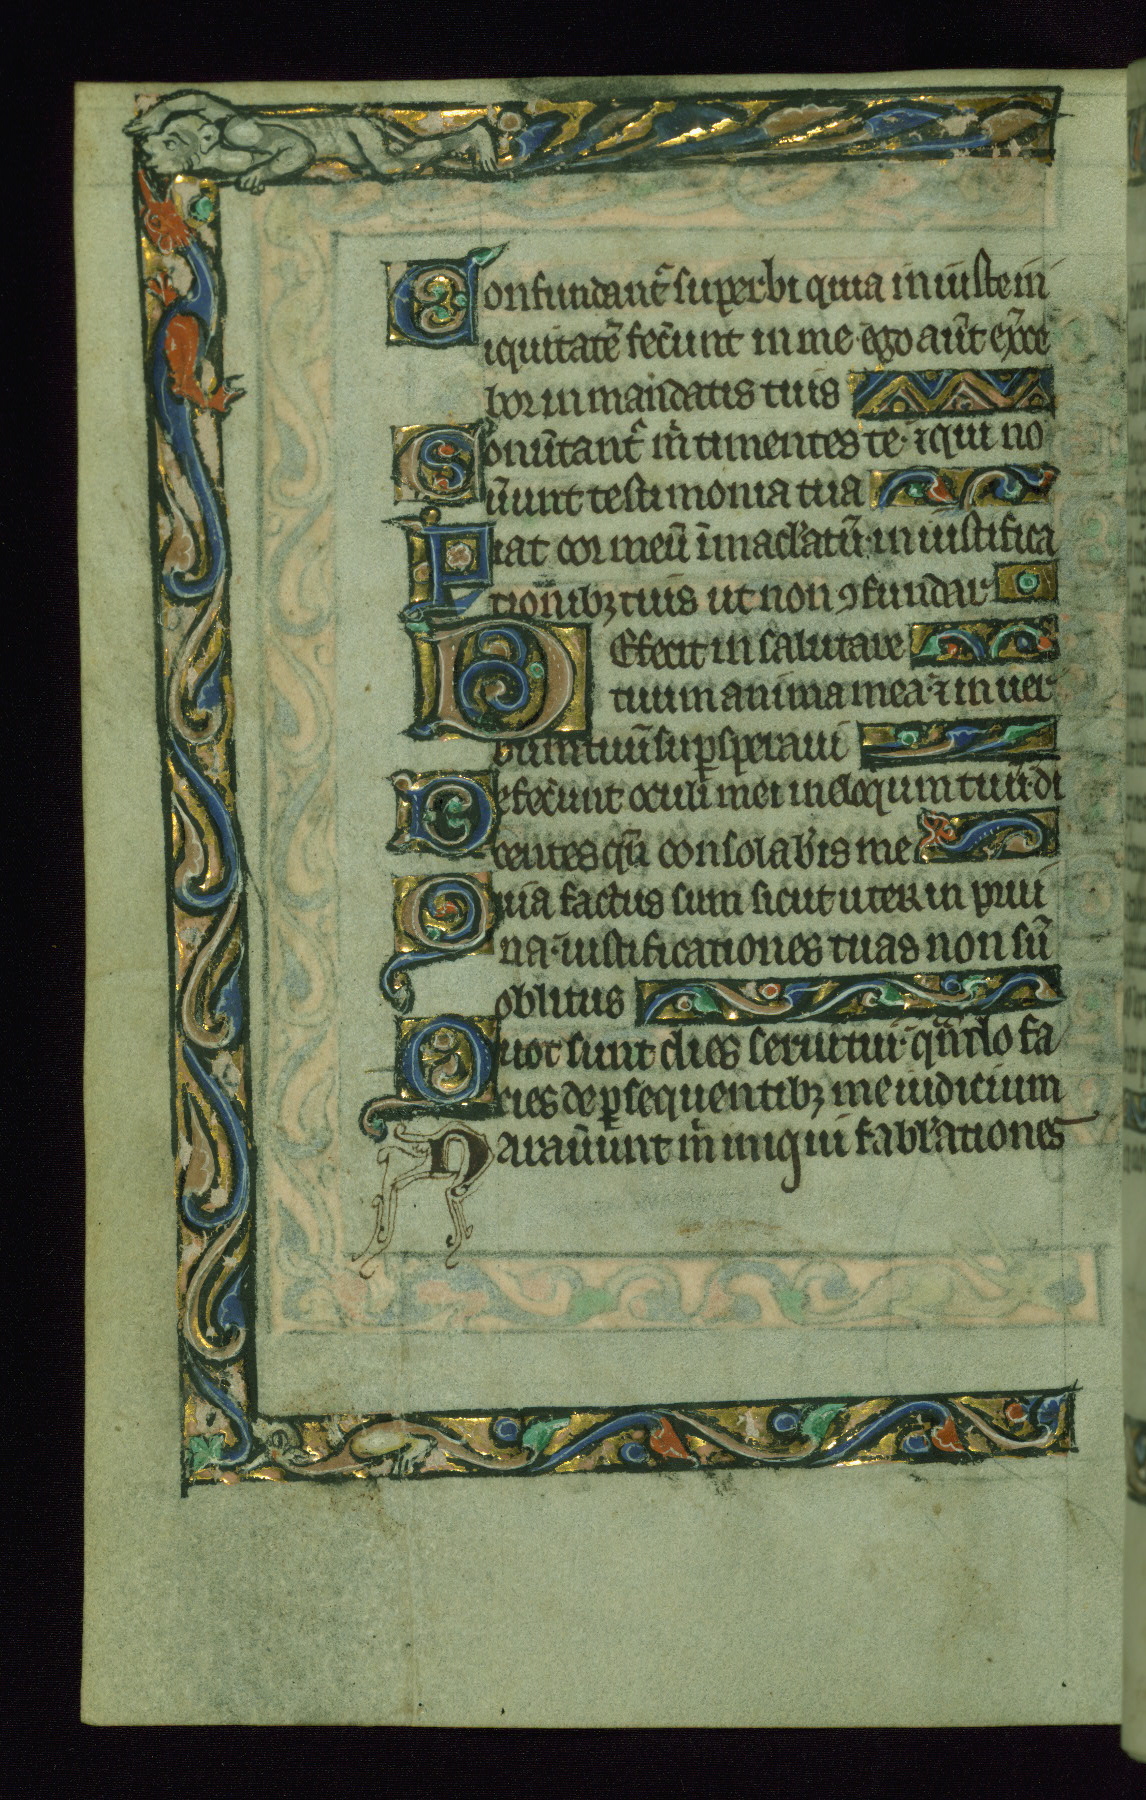 Confundant᷑ superbi quia iniuste in
iquitatē fec̄unt in me ego aut̄ ex̄ce
bor in mandatis tuis
Conūtant᷑ m̄ timentes te· ⁊ qui no
ūunt testimonia tua
Fiat cor meū īmaclatū· in iustifica
tionibꝫ tuis ut non ꝯfundar
Defecit in salutare
tuum anima mea· ⁊ in uer
bum tuū suꝑ speraui
Defec̄unt oculi mei in eloqium tuū· di
centes qn̄ consolab̄is me
Quia factus sum sicut uter in prui
na· iustificationes tuas non sū
oblitus
Quot sunt dies serui tui· qn̄do fa
cies de ꝑsequentibꝫ me iudicium
Naraūunt m̄ iniqui fablationes